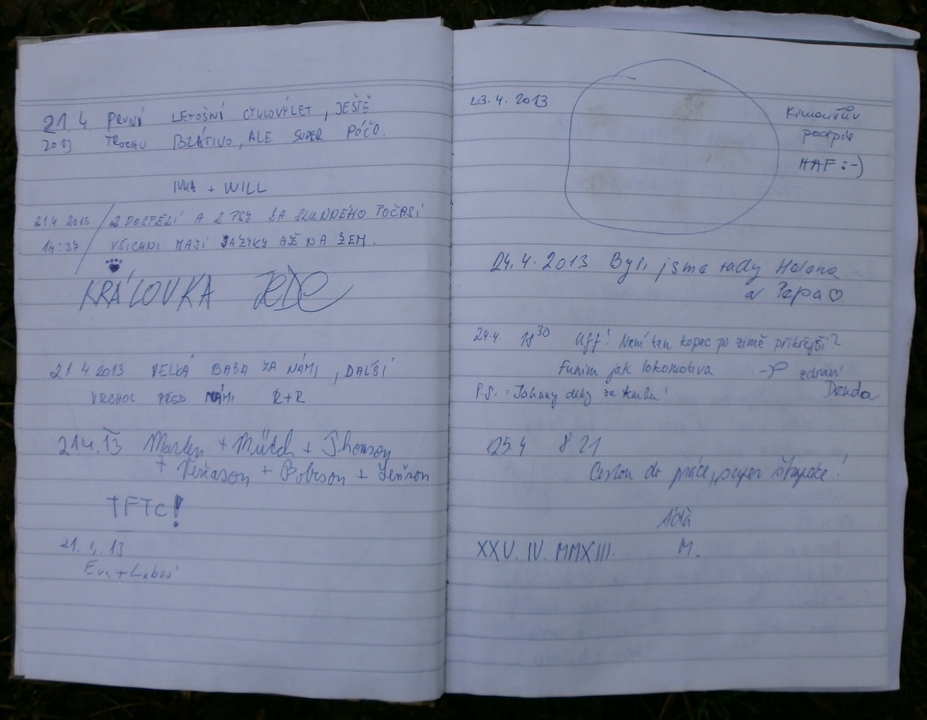 21.4 PRVNÍ LETOŠNÍ CYKLOVÝLET, JEŠTĚ
2013 TROCHU BLÁTIVO, ALE SUPER PÓČO.
IVKA + WILL
21.4.2013 / 2 DOSPĚLÍ A 2 PSY ZA SLUNNÉHO POČASÍ
14:37 VŠICHNI MAJÍ JAZYKY AŽ NA ZEM.
KRÁĽOVKA JEDE
21.4 2013 VELKÁ BAŠA ZA NÁMI, DALŠÍ
VRCHOL PŘED NÁMI R+R
21.4.13 Martin + Mütch + Thomson
+ + Bobson +
TFTC!
21. 4. 13
Eva + Luboš
23.4.2013
podpis
HAF :-)
24.4.2013 Byli jsme tady Helena
a Pepa ♡
24.4 18 30 Uff! Není ten kopec po zimě příkřejší?
Funím jak lokomotiva zdraví
P.S.: Johnny díky za Denda
25.4 8 21
Cestou do práce, super
M.
XXV. IV. MMXIII.